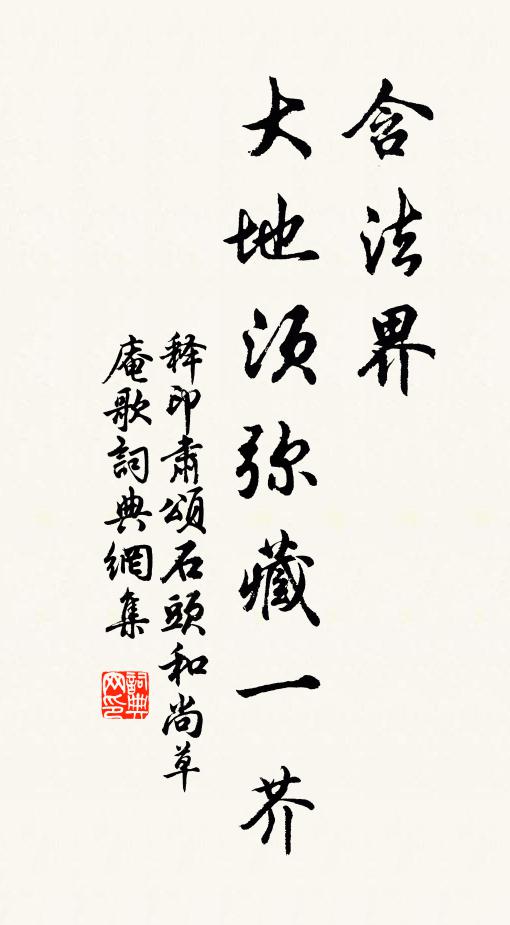 含法界
大地须弥藏一芥
释印肃颂石頭和尚草
庵歌詞典網集
詞典网印